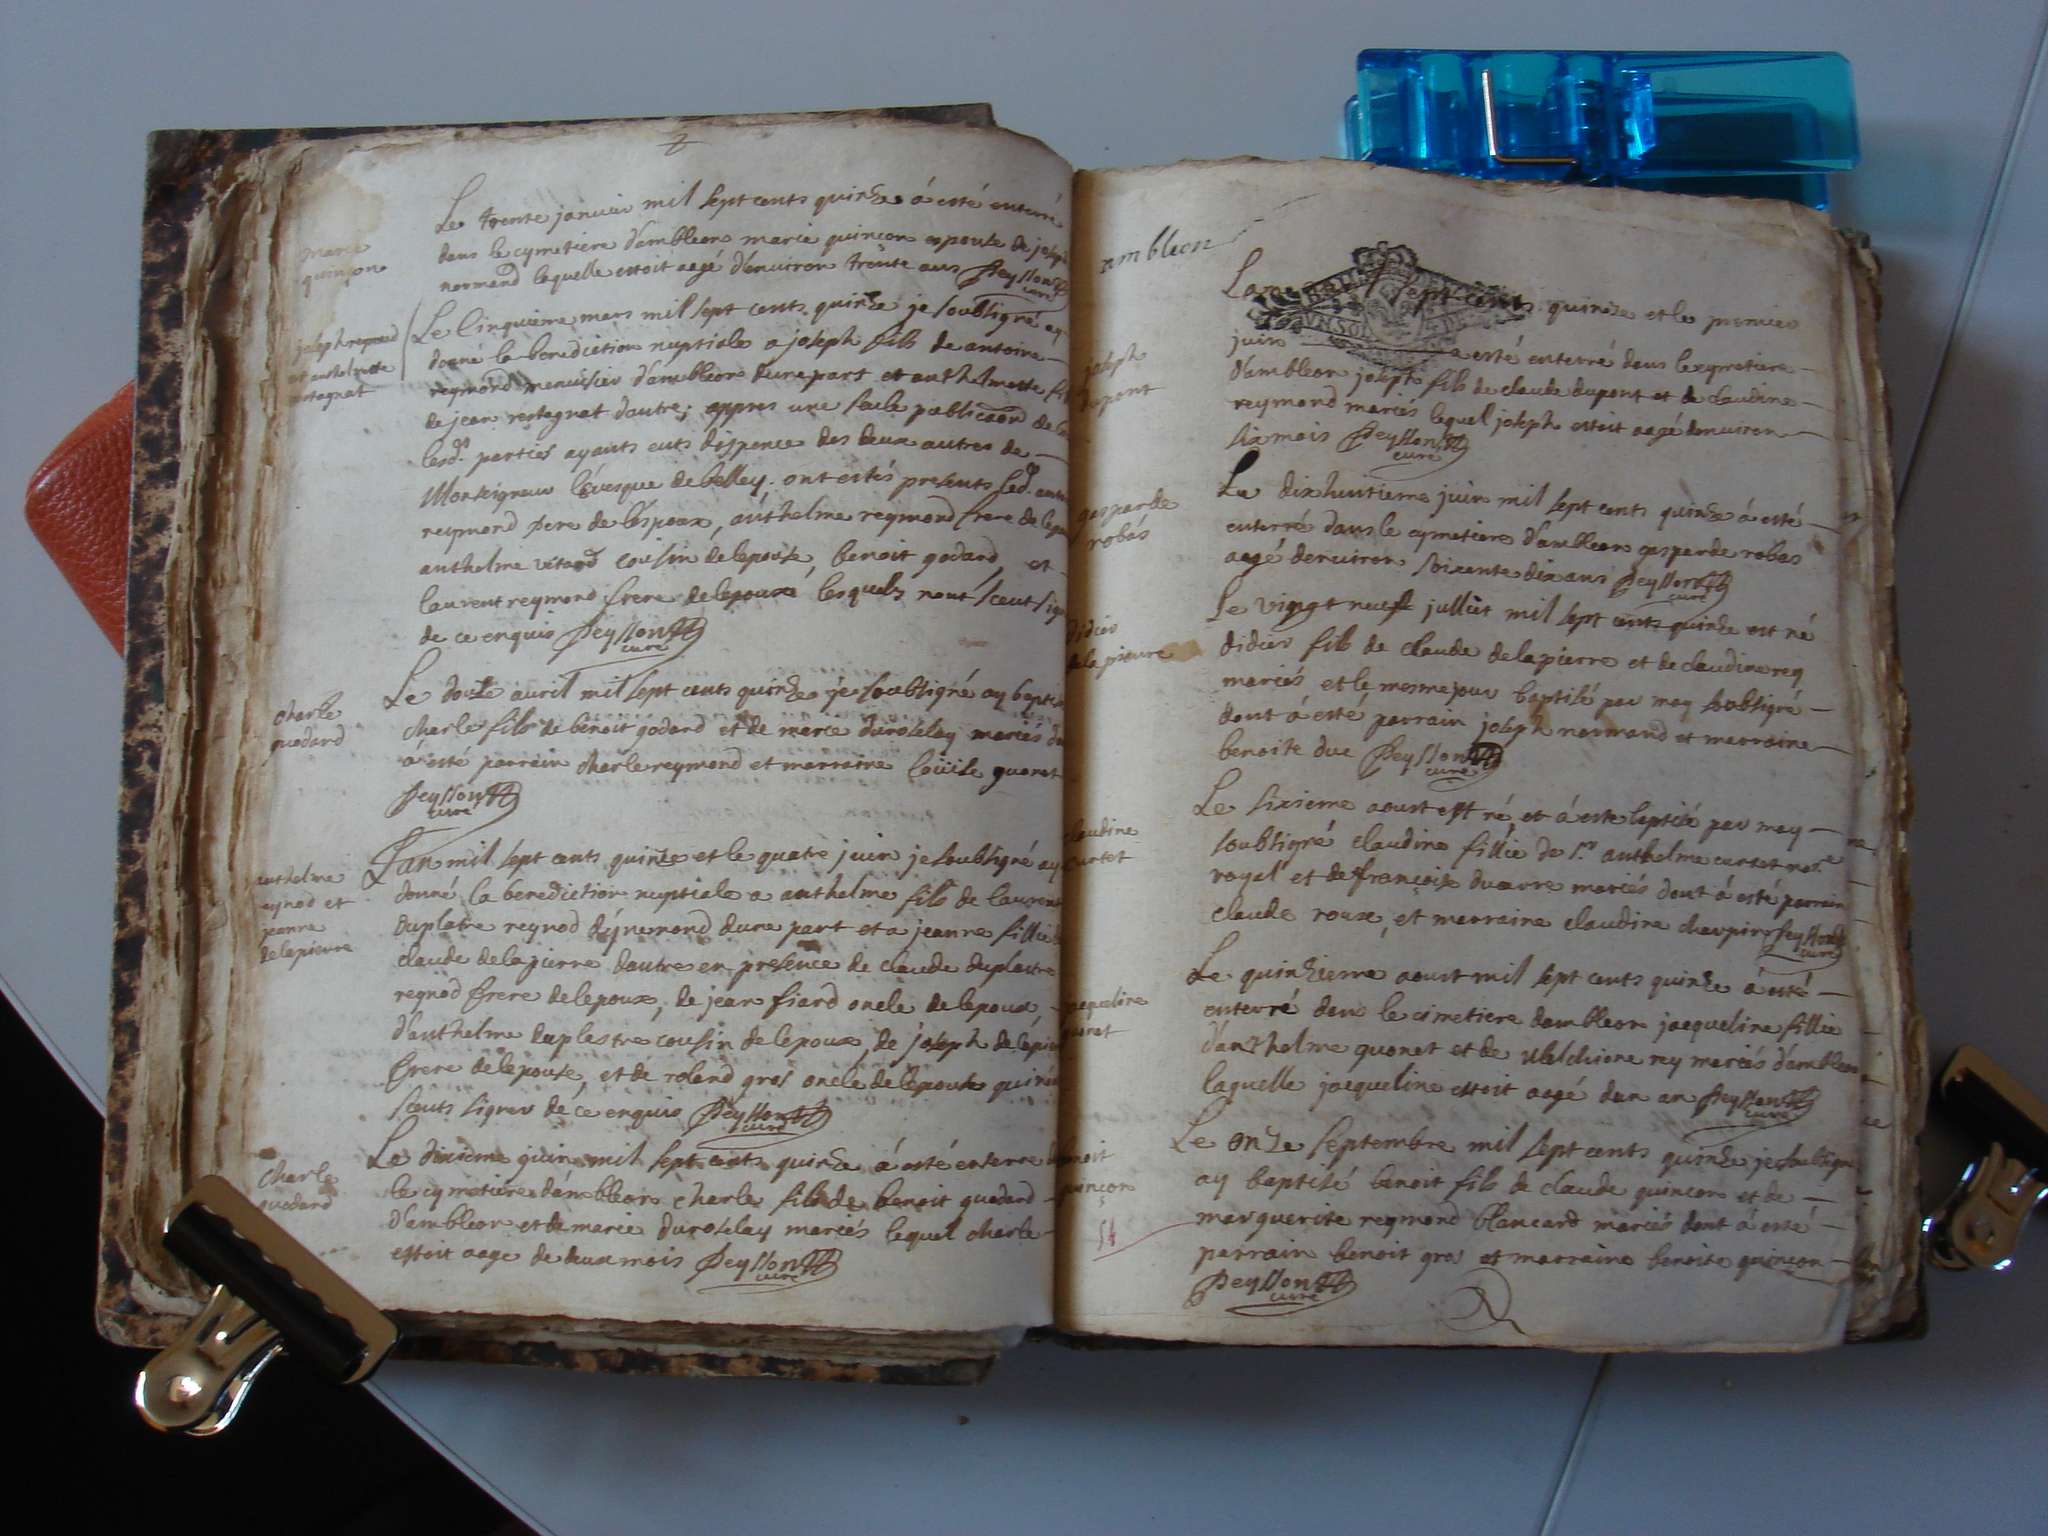 marie
quinçon
Le trente janvier mil sept cents quinze á esté enterré
dans le cymetiere d'ambleon marie quincon espouse de joseph
normand lequelle estoit aagé d'environ trente ans Peysson
curé
joseph reymond
et anthelmette
restagnat
Le cinquieme mars mil sept cents quinze je soubsigné ay
donné la benediction nuptiale a joseph fils de antoine
reymond menuisier d'ambleon d'une part et anthelmette
de jean restagnat d'autre; appres une seule publicaon
lesd. parties ayants eüts dispence des deux autres de
Monseigneur l'évesque de belley. ont estés presents led.
reymond pere de l'éspoux, anthelme reymond frere de
anthelme vitard cousin de lepouse, benoit godard, et
laurent reymond frere de lepoux lesquels n'ont sceut
de ce enquis Peysson
curé
charle
guodard
Le douze avril mil sept cents quinze je soubsigné ay
charle fils de benoit godard et de marie duroselay mariés
á esté parrain charle reymond et marraine loüise quonet
Peysson
curé
anthelme
reynod et
jeanne
delapierre
L'an mil sept cents quinze et le quatre juin je soubsigné ay
donné la benediction nuptiale a anthelme fils de laurent
duplatre reynod d'ynemond dune part et a jeanne fillie
claude delapierre dautre en presence de claude duplastre
reynod frere de lepoux, de jean fiard oncle de lepoux,
d'anthelme duplastre cousin de lepoux, de joseph
frere de lepouse, et de roland gros oncle de lepouse
sceuts signer de ce enquis Peysson
curé
charle
guodard
Le dixieme juin mil sept cents quinze á esté enterré
le cymetiere d'ambleon charle fils de benoit guodard
d'ambleon et de marie duroselay mariés lequel charle
estoit aage de deux mois Peysson
curé
ambleon
joseph
dupont
sept cents quinze et le premier
juin a esté enterré dans le cymetiere
d'ambleon joseph fils de claude dupont et de claudine
reymond mariés lequel joseph estoit aagé denviron
six mois Peysson
curé
gasparde
robas
Le dixhuitieme juin mil sept cents quinze á esté
enterré dans le cymetiere d'ambleon gasparde robas
aagé denviron soixante dix ans Peysson
curé
didier
delapierre
Le vingt neuf juillet mil sept cents quinze est né
didier fils de claude delapierre et de claudine rey
mariés et le mesme jour baptisé par moy soubsigné
dont á esté parrain joseph normand et marraine
benoite duc Peysson
curé
claudine
curtet
Le sixieme aoust est né, et á esté baptisé par moy
soubsigné claudine fillie de sr. anthelme curtet
royal et de françoise mariés dont á esté parrain
claude roux, et marraine claudine charpin Peysson
curé
jacqueline
quonet
Le quinzieme aoust mil sept cents quinze á esté
enterré dans le cimetiere dambleon jacqueline fillie
d'anthelme quonet et de Melchione rey mariés d'ambleon
laquelle jacqueline estoit aagé dun an Peysson
curé
benoit
quinçon
54
Le onze septembre mil sept cents quinze je soubsigné
ay baptisé benoit fils de claude quincon et de
marguerite reymond blancard mariés dont á esté
parrain benoit gros et marraine benoite quinçon
Peysson
curé